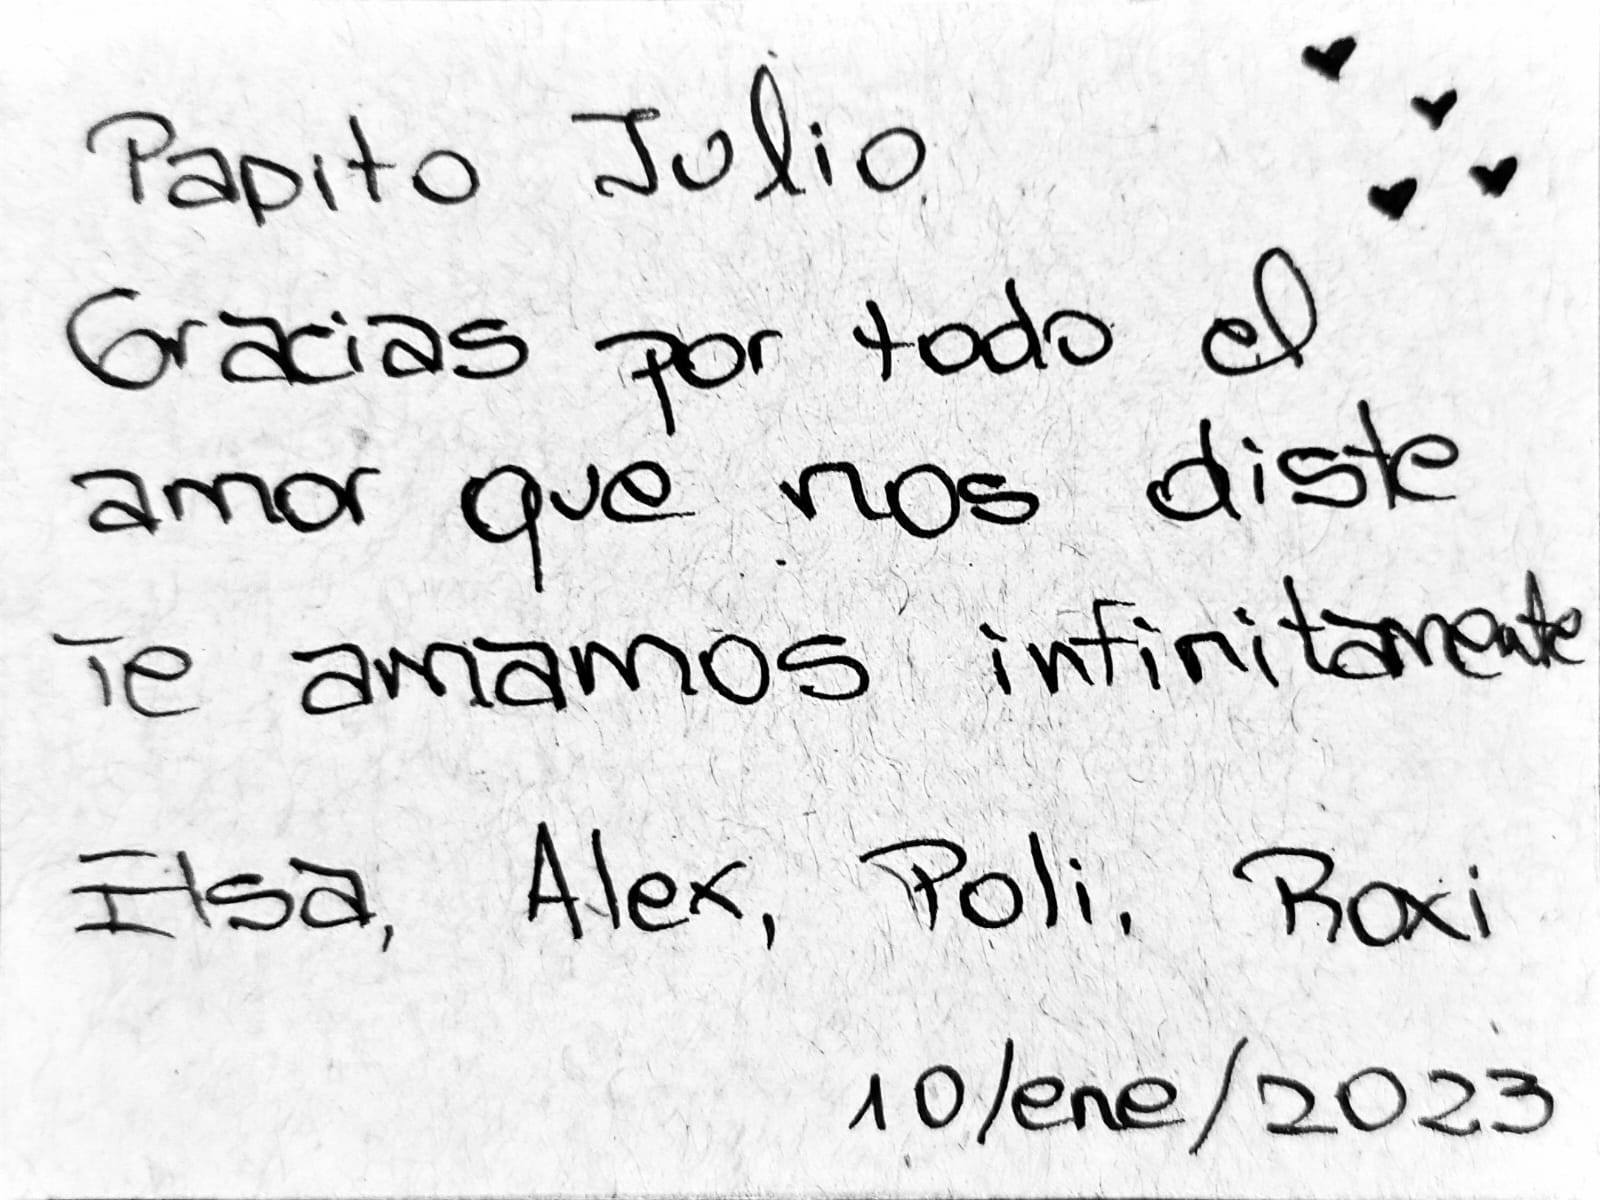 Papito Julio
Gracias por todo el
amor que nos diste
Te amamos infinitamente
Ilsa, Alex, Poli. Roxi
10/ene/2023